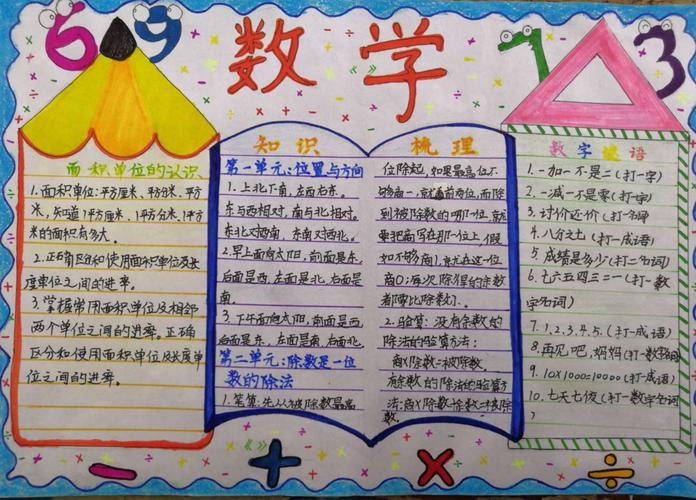 6 9 数学 7 3
面积单位的认识
1.面积单位:平方厘米、平方分米、平方
米,知道1平方厘米、1平方分米、1平方
米的面积有多大。
2.正确区分和使用面积单位及长
度单位之间的进率。
3.掌握常用面积单位及相邻
两个单位之间的进率。正确
区分和使用面积单位及长度单
位之间的进率。
知识 梳理
第一单元:位置与方向
1.上北下南,左西右东。
东与西相对,南与北相对。
东北对西南,东南对西北。
2.早上面向太阳,前面是东,
后面是西,左面是北,右面是
南。
3.下午面向太阳,前面是西,
后面是东,左面是南,右面是北。
第二单元:除数是一位
数的除法
1.笔算:先从被除数最高
位除起,如果最高位不
够商一,就看前两位,而除
到被除数的哪一位,就
要把商写在那一位上,假
如不够商1,就在这一位
商0;每次除得的余数
都要比除数小。
2.验算:没有余数的
除法的验算方法:
商×除数=被除数。
有余数的除法的验算方
法:商×除数+余数=被除
数。
数字谜语
1.一加一不是二(打一字)
2.一减一不是零(打一字)
3.讨价还价(打一名词)
4.八分之七(打一成语)
5.成绩是多少(打二名词)
6.七六五四三二一(打一数
学名词)
7.1.2.3.4.5.(打一成语)
8.再见吧,妈妈(打一数学名词)
9.10×1000=10000(打一成语)
10.七天七夜(打一数学名词
)
− + × ÷